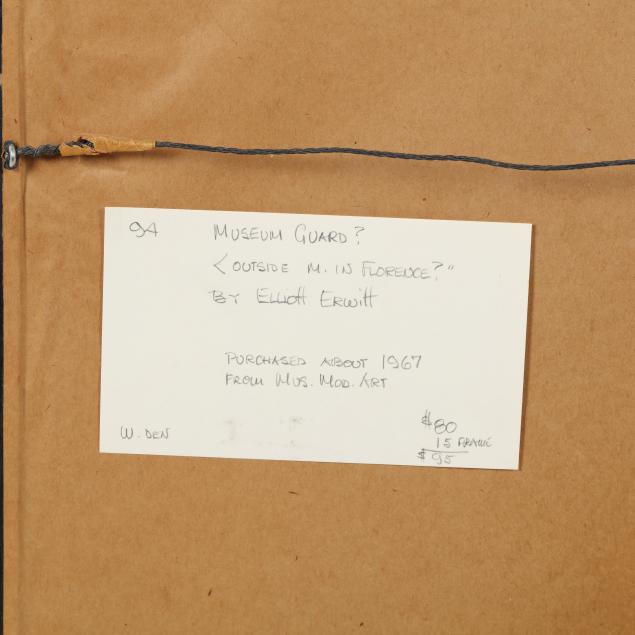 94
MUSEUM GUARD?
< OUTSIDE M. IN FLORENCE?"
BY ELLIOTT ERWITT
PURCHASED ABOUT 1967
FROM MUS. MOD. ART
W. DEN
$80
15 FRAME
$95